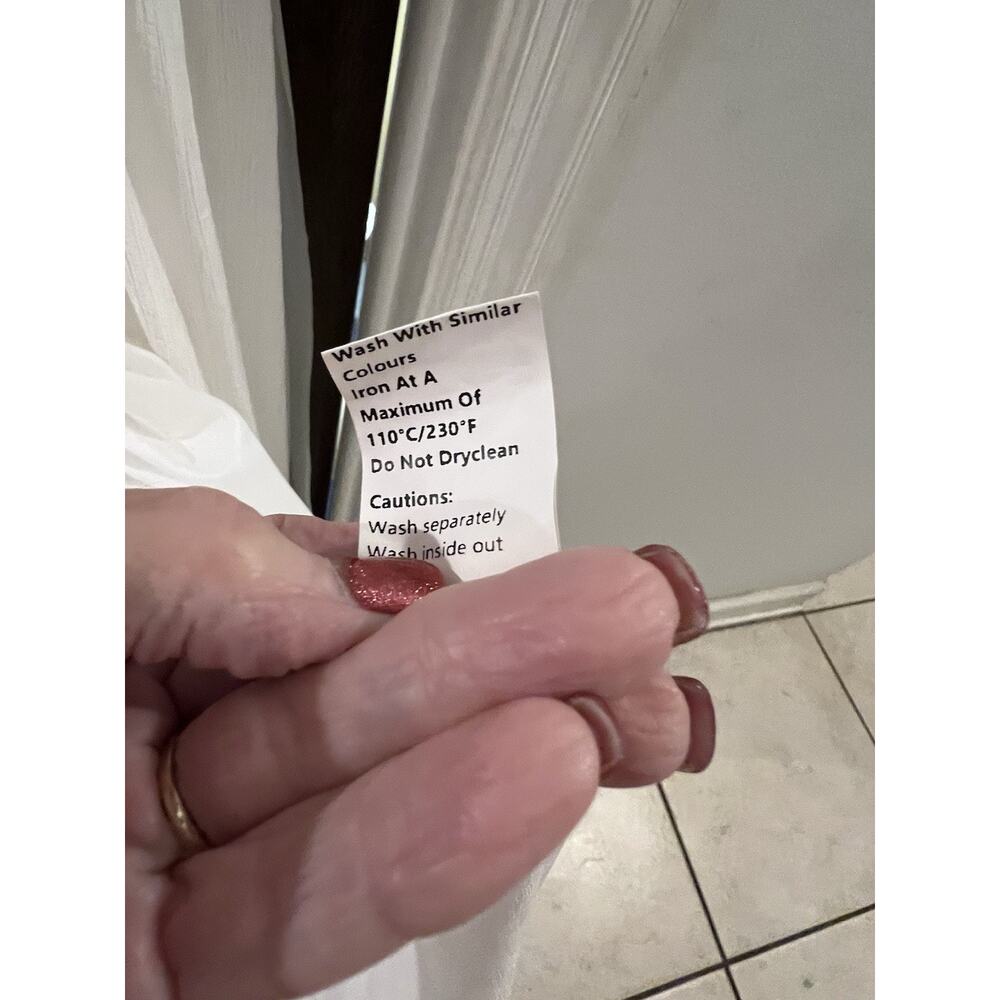 Wash With Similar
Colours
Iron At A
Maximum Of
110°C/230°F
Do Not Dryclean
Cautions:
Wash separately
Wash inside out